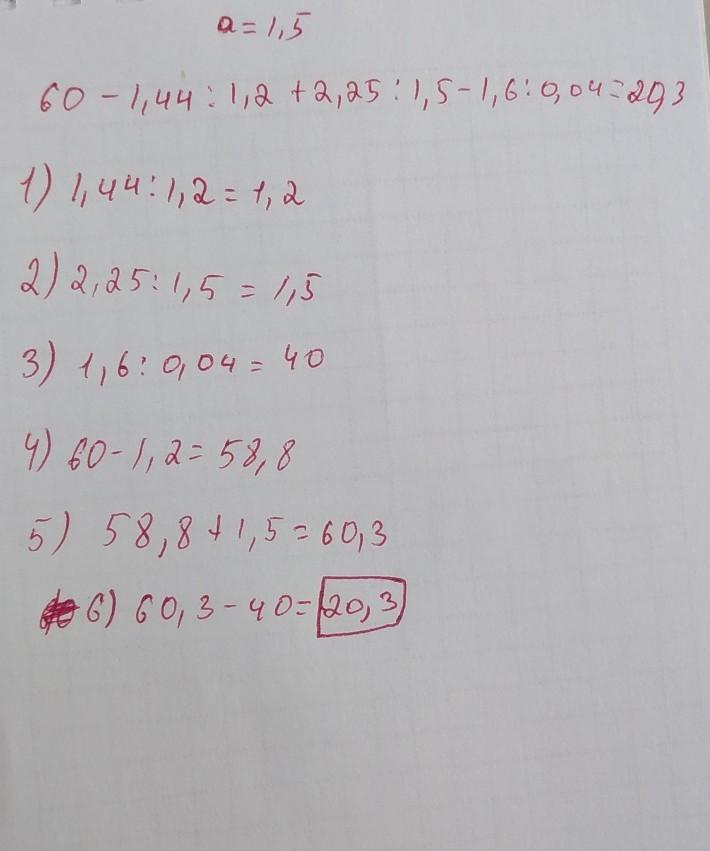 a = 1,5
60 - 1,44 : 1,2 + 2,25 : 1,5 - 1,6 : 0,04 = 20,3
1) 1,44 : 1,2 = 1,2
2) 2,25 : 1,5 = 1,5
3) 1,6 : 0,04 = 40
4) 60 - 1,2 = 58,8
5) 58,8 + 1,5 = 60,3
6) 60,3 - 40 = 20,3